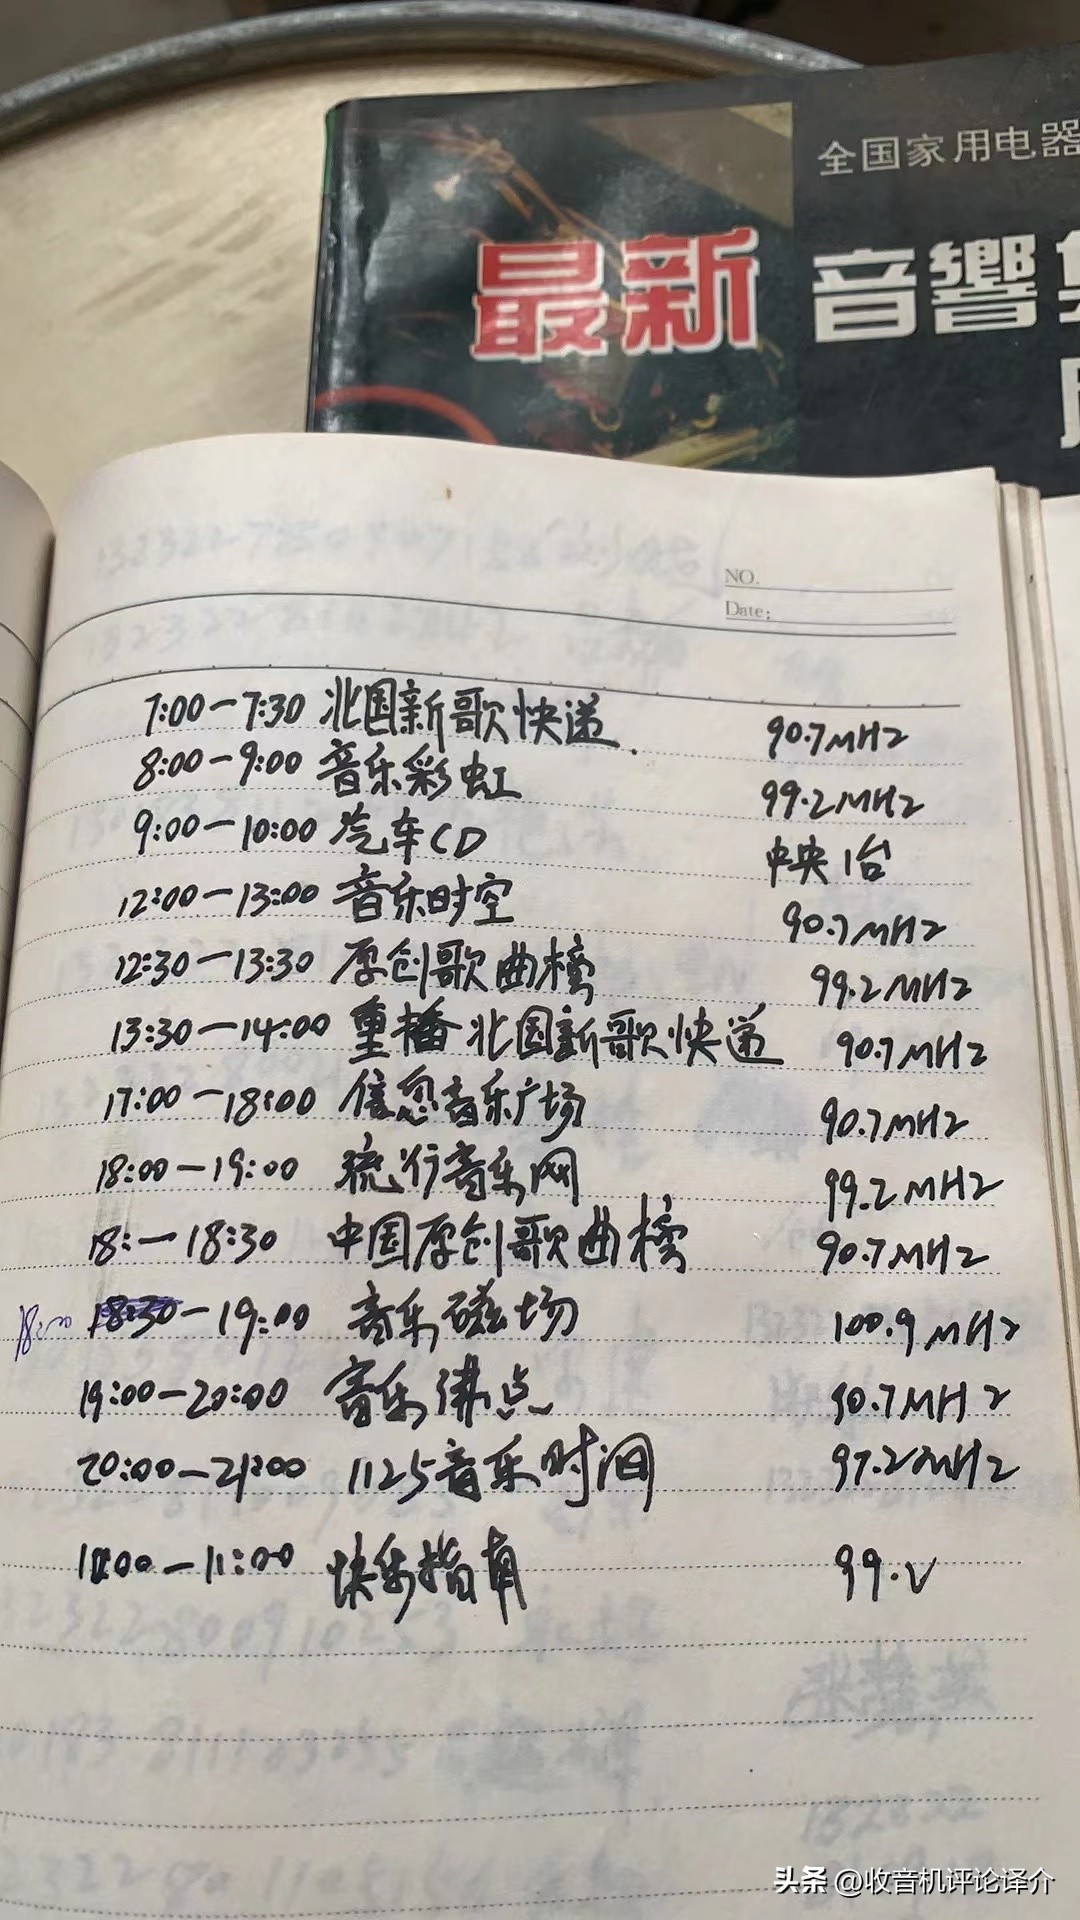 全国家用电器
最新 音響
NO.
Date:
7:00-7:30 北国新歌快递. 90.7MHz
8:00-9:00 音乐彩虹 99.2MHz
9:00-10:00 汽车CD 中央1台
12:00-13:00 音乐时空 90.7MHz
12:30-13:30 原创歌曲榜 99.2MHz
13:30-14:00 重播北国新歌快递 90.7MHz
17:00-18:00 信息音乐广场 90.7MHz
18:00-19:00 流行音乐网 99.2MHz
18:-18:30 中国原创歌曲榜 90.7MHz
18:00 18:30-19:00 音乐磁场 100.9MHz
19:00-20:00 音乐沸点 90.7MHz
20:00-21:00 1125音乐时间 97.2MHz
-11:00 快乐指南 99.2
头条 @收音机评论译介